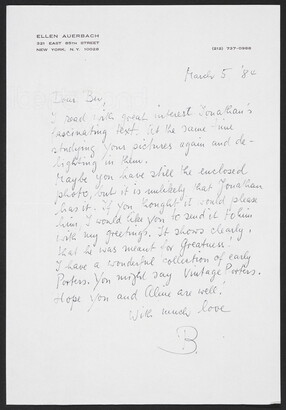 ELLEN AUERBACH
321 EAST 85TH STREET
NEW YORK, N.Y. 10028
(212) 737-0988
March 5 '84
Dear Bev,
I read with great interest Jonathan's
fascinating text. At the same time
studying your pictures again and de-
lighting in them.
Maybe you have still the enclosed
photo, but it is unlikely that Jonathan
has it. If you thought it would please
him, I would like you to send it to him
with my greetings. It shows clearly
that he was meant for Greatness!
I have a wonderful collection of early
Porters. You might say Vintage Porters.
Hope you and Aline are well!
With much love
B.